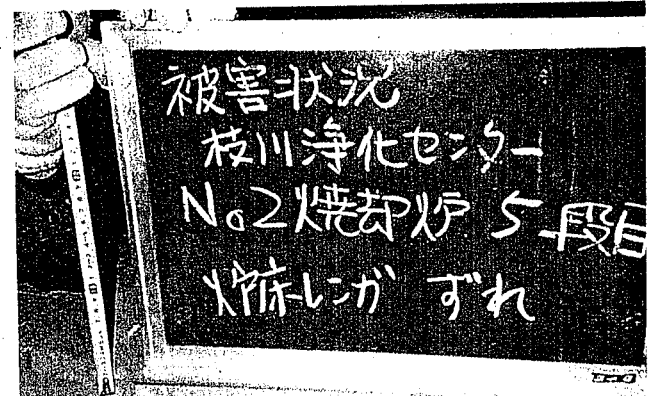 被害状況
枝川浄化センター
No2焼却炉 5段目
炉床レンガ ずれ